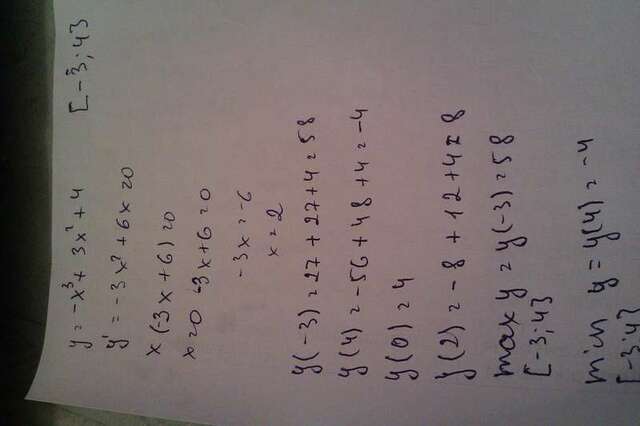 y = -x³ + 3x² + 4 [-3; 4]
y' = -3x² + 6x = 0
x(-3x + 6) = 0
x = 0 -3x + 6 = 0
-3x = -6
x = 2
y(-3) = 27 + 27 + 4 = 58
y(4) = -56 + 48 + 4 = -4
y(0) = 4
y(2) = -8 + 12 + 4 = 8
max y = y(-3) = 58
[-3; 4]
min y = y(4) = -4
[-3; 4]